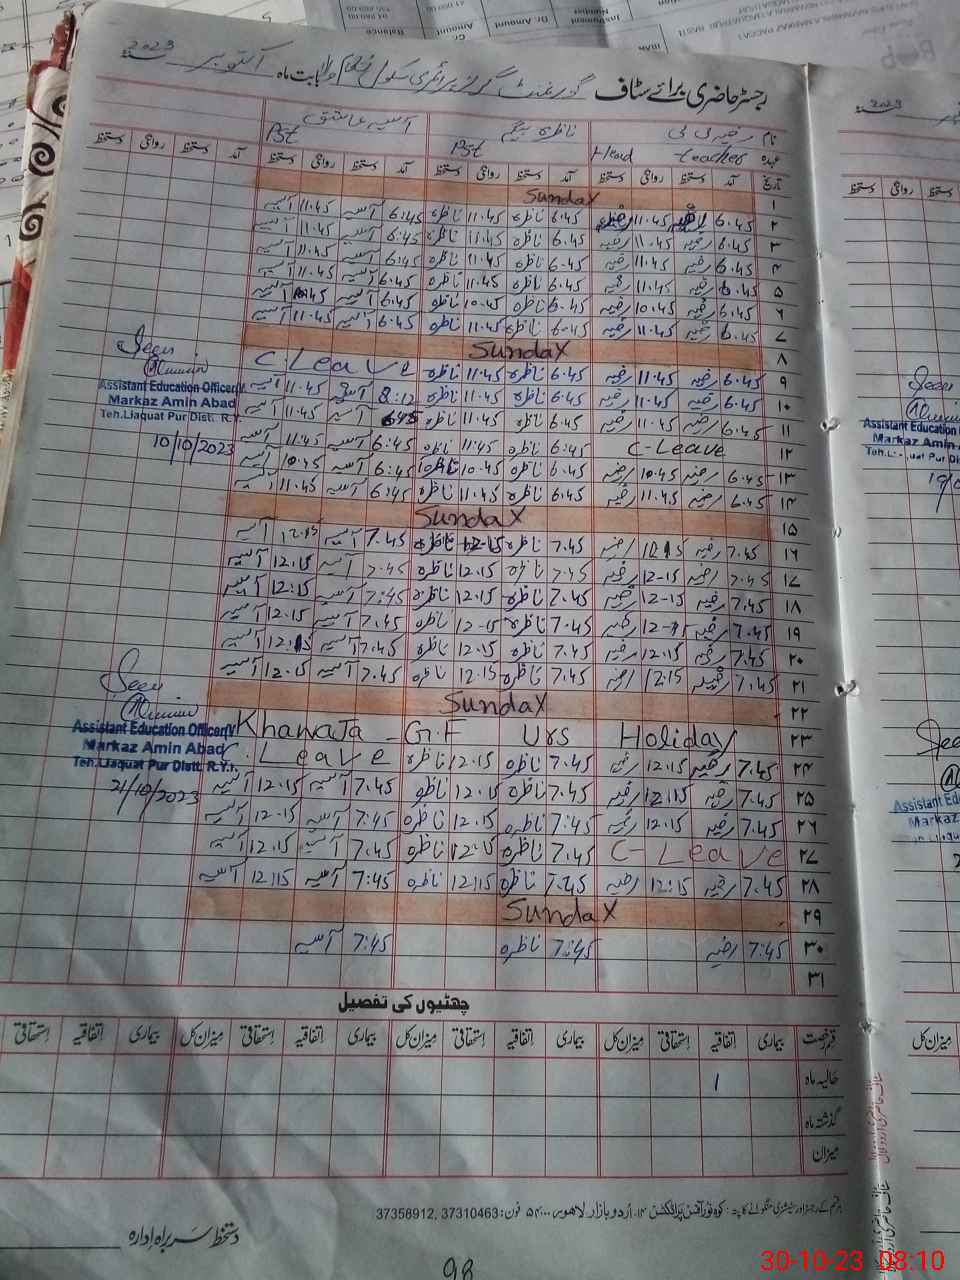 رجسٹر حاضری برائے سٹاف گورنمنٹ گرلز پرائمری سکول بابت ماہ اکتوبر 2023
نام رضیہ بی بی ناظرہ بیگم آسیہ عاشق
عہدہ Head teacher Pst Pst
تاریخ آمد دستخط روانگی دستخط آمد دستخط روانگی دستخط آمد دستخط روانگی دستخط آمد دستخط روانگی دستخط
۱ Sunday
۲ 6.45 رضیہ 11.45 رضیہ 6.45 ناظرہ 11.45 ناظرہ 6:45 آسیہ 11.45 آسیہ
۳ 6.45 رضیہ 11.45 رضیہ 6.45 ناظرہ 11.45 ناظرہ 6:45 آسیہ 11.45 آسیہ
۴ 6.45 رضیہ 11.45 رضیہ 6.45 ناظرہ 11.45 ناظرہ 6:45 آسیہ 11.45 آسیہ
۵ 6.45 رضیہ 11.45 رضیہ 6.45 ناظرہ 11.45 ناظرہ 6.45 آسیہ 11.45 آسیہ
۶ 6.45 رضیہ 10.45 رضیہ 6.45 ناظرہ 10.45 ناظرہ 6.45 آسیہ 10.45 آسیہ
۷ 6.45 رضیہ 11.45 رضیہ 6.45 ناظرہ 11.45 ناظرہ 6.45 آسیہ 11.45 آسیہ
۸ Sunday
۹ 6.45 رضیہ 11.45 رضیہ 6.45 ناظرہ 11.45 ناظرہ C.Leave
۱۰ 6.45 رضیہ 11.45 رضیہ 6.45 ناظرہ 11.45 ناظرہ 8:12 آسیہ 11.45 آسیہ
۱۱ 6.45 رضیہ 11.45 رضیہ 6.45 ناظرہ 11.45 ناظرہ 6:45 آسیہ 11.45 آسیہ
۱۲ C-Leave 6:45 ناظرہ 11:45 ناظرہ 6:45 آسیہ 11:45 آسیہ
۱۳ 6.45 رضیہ 10.45 رضیہ 6.45 ناظرہ 10.45 ناظرہ 6:45 آسیہ 10.45 آسیہ
۱۴ 6.45 رضیہ 11.45 رضیہ 6.45 ناظرہ 11.45 ناظرہ 6:45 آسیہ 11.45 آسیہ
۱۵ Sunday
۱۶ 7.45 رضیہ 12.15 رضیہ 7.45 ناظرہ 12.15 ناظرہ 7.45 آسیہ 12.15 آسیہ
۱۷ 7.45 رضیہ 12-15 رضیہ 7.45 ناظرہ 12.15 ناظرہ 7.45 آسیہ 12.15 آسیہ
۱۸ 7.45 رضیہ 12-15 رضیہ 7.45 ناظرہ 12.15 ناظرہ 7:45 آسیہ 12:15 آسیہ
۱۹ 7.45 رضیہ 12-15 رضیہ 7.45 ناظرہ 12.15 ناظرہ 7.45 آسیہ 12.15 آسیہ
۲۰ 7.45 رضیہ 12.15 رضیہ 7.45 ناظرہ 12.15 ناظرہ 7.45 آسیہ 12.15 آسیہ
۲۱ 7.45 رضیہ 12.15 رضیہ 7.45 ناظرہ 12.15 ناظرہ 7.45 آسیہ 12.15 آسیہ
۲۲ Sunday
۲۳ Khawaja G.F Urs Holiday
۲۴ 7.45 رضیہ 12.15 رضیہ 7.45 ناظرہ 12.15 ناظرہ C.Leave
۲۵ 7.45 رضیہ 12:15 رضیہ 7.45 ناظرہ 12.15 ناظرہ 7.45 آسیہ 12.15 آسیہ
۲۶ 7.45 رضیہ 12.15 رضیہ 7:45 ناظرہ 12.15 ناظرہ 7:45 آسیہ 12.15 آسیہ
۲۷ C-Leave 7.45 ناظرہ 12:15 ناظرہ 7.45 آسیہ 12.15 آسیہ
۲۸ 7.45 رضیہ 12:15 رضیہ 7.45 ناظرہ 12:15 ناظرہ 7:45 آسیہ 12:15 آسیہ
۲۹ Sunday
۳۰ 7:45 رضیہ 7:45 ناظرہ 7:45 آسیہ
۳۱
Seen
Assistant Education Officer
Markaz Amin Abad
Teh.Liaquat Pur Dist. R.Y.
10/10/2023
Seen
Assistant Education Officer
Markaz Amin Abad
Teh.Liaquat Pur Distt. R.Y.
21/10/2023
چھٹیوں کی تفصیل
قسم رخصت بیماری اتفاقیہ استحقاقی میزان کل بیماری اتفاقیہ استحقاقی میزان کل بیماری اتفاقیہ استحقاقی میزان کل بیماری اتفاقیہ استحقاقی
حالیہ ماہ 1
گذشتہ ماہ
میزان
کوہ نور آفسٹ پراڈکٹس ۱۴۔ اردو بازار لاہور ۵۴۰۰۰ فون: 37310463, 37356912
دستخط سربراہ ادارہ
98
30-10-23 08:10
2023
Seen
Assistant Education
Markaz Amin
Seen
Assistant Ed
Markaz